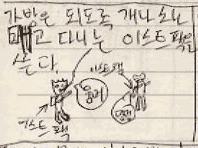 가방은 되도록 개나 소나
메고 다니는 이스트팩을
쓴다
이스트팩
이스트팩